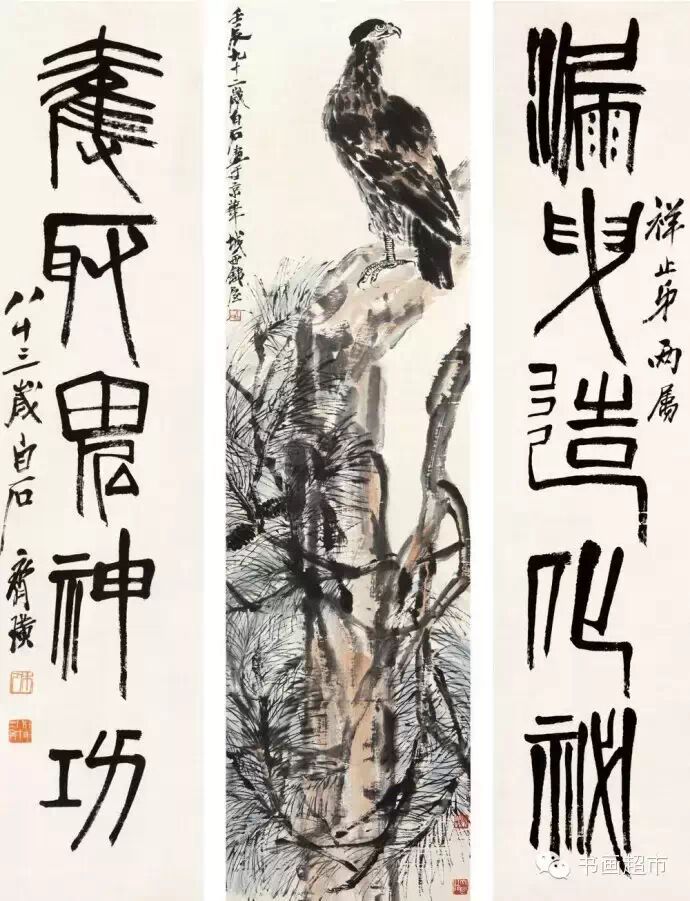 漏曳造化祕
祥止弟两属
壬辰九十二歲白石畫于京華城西鐵屋
奪取鬼神功
八十三歲白石齊璜
书画超市